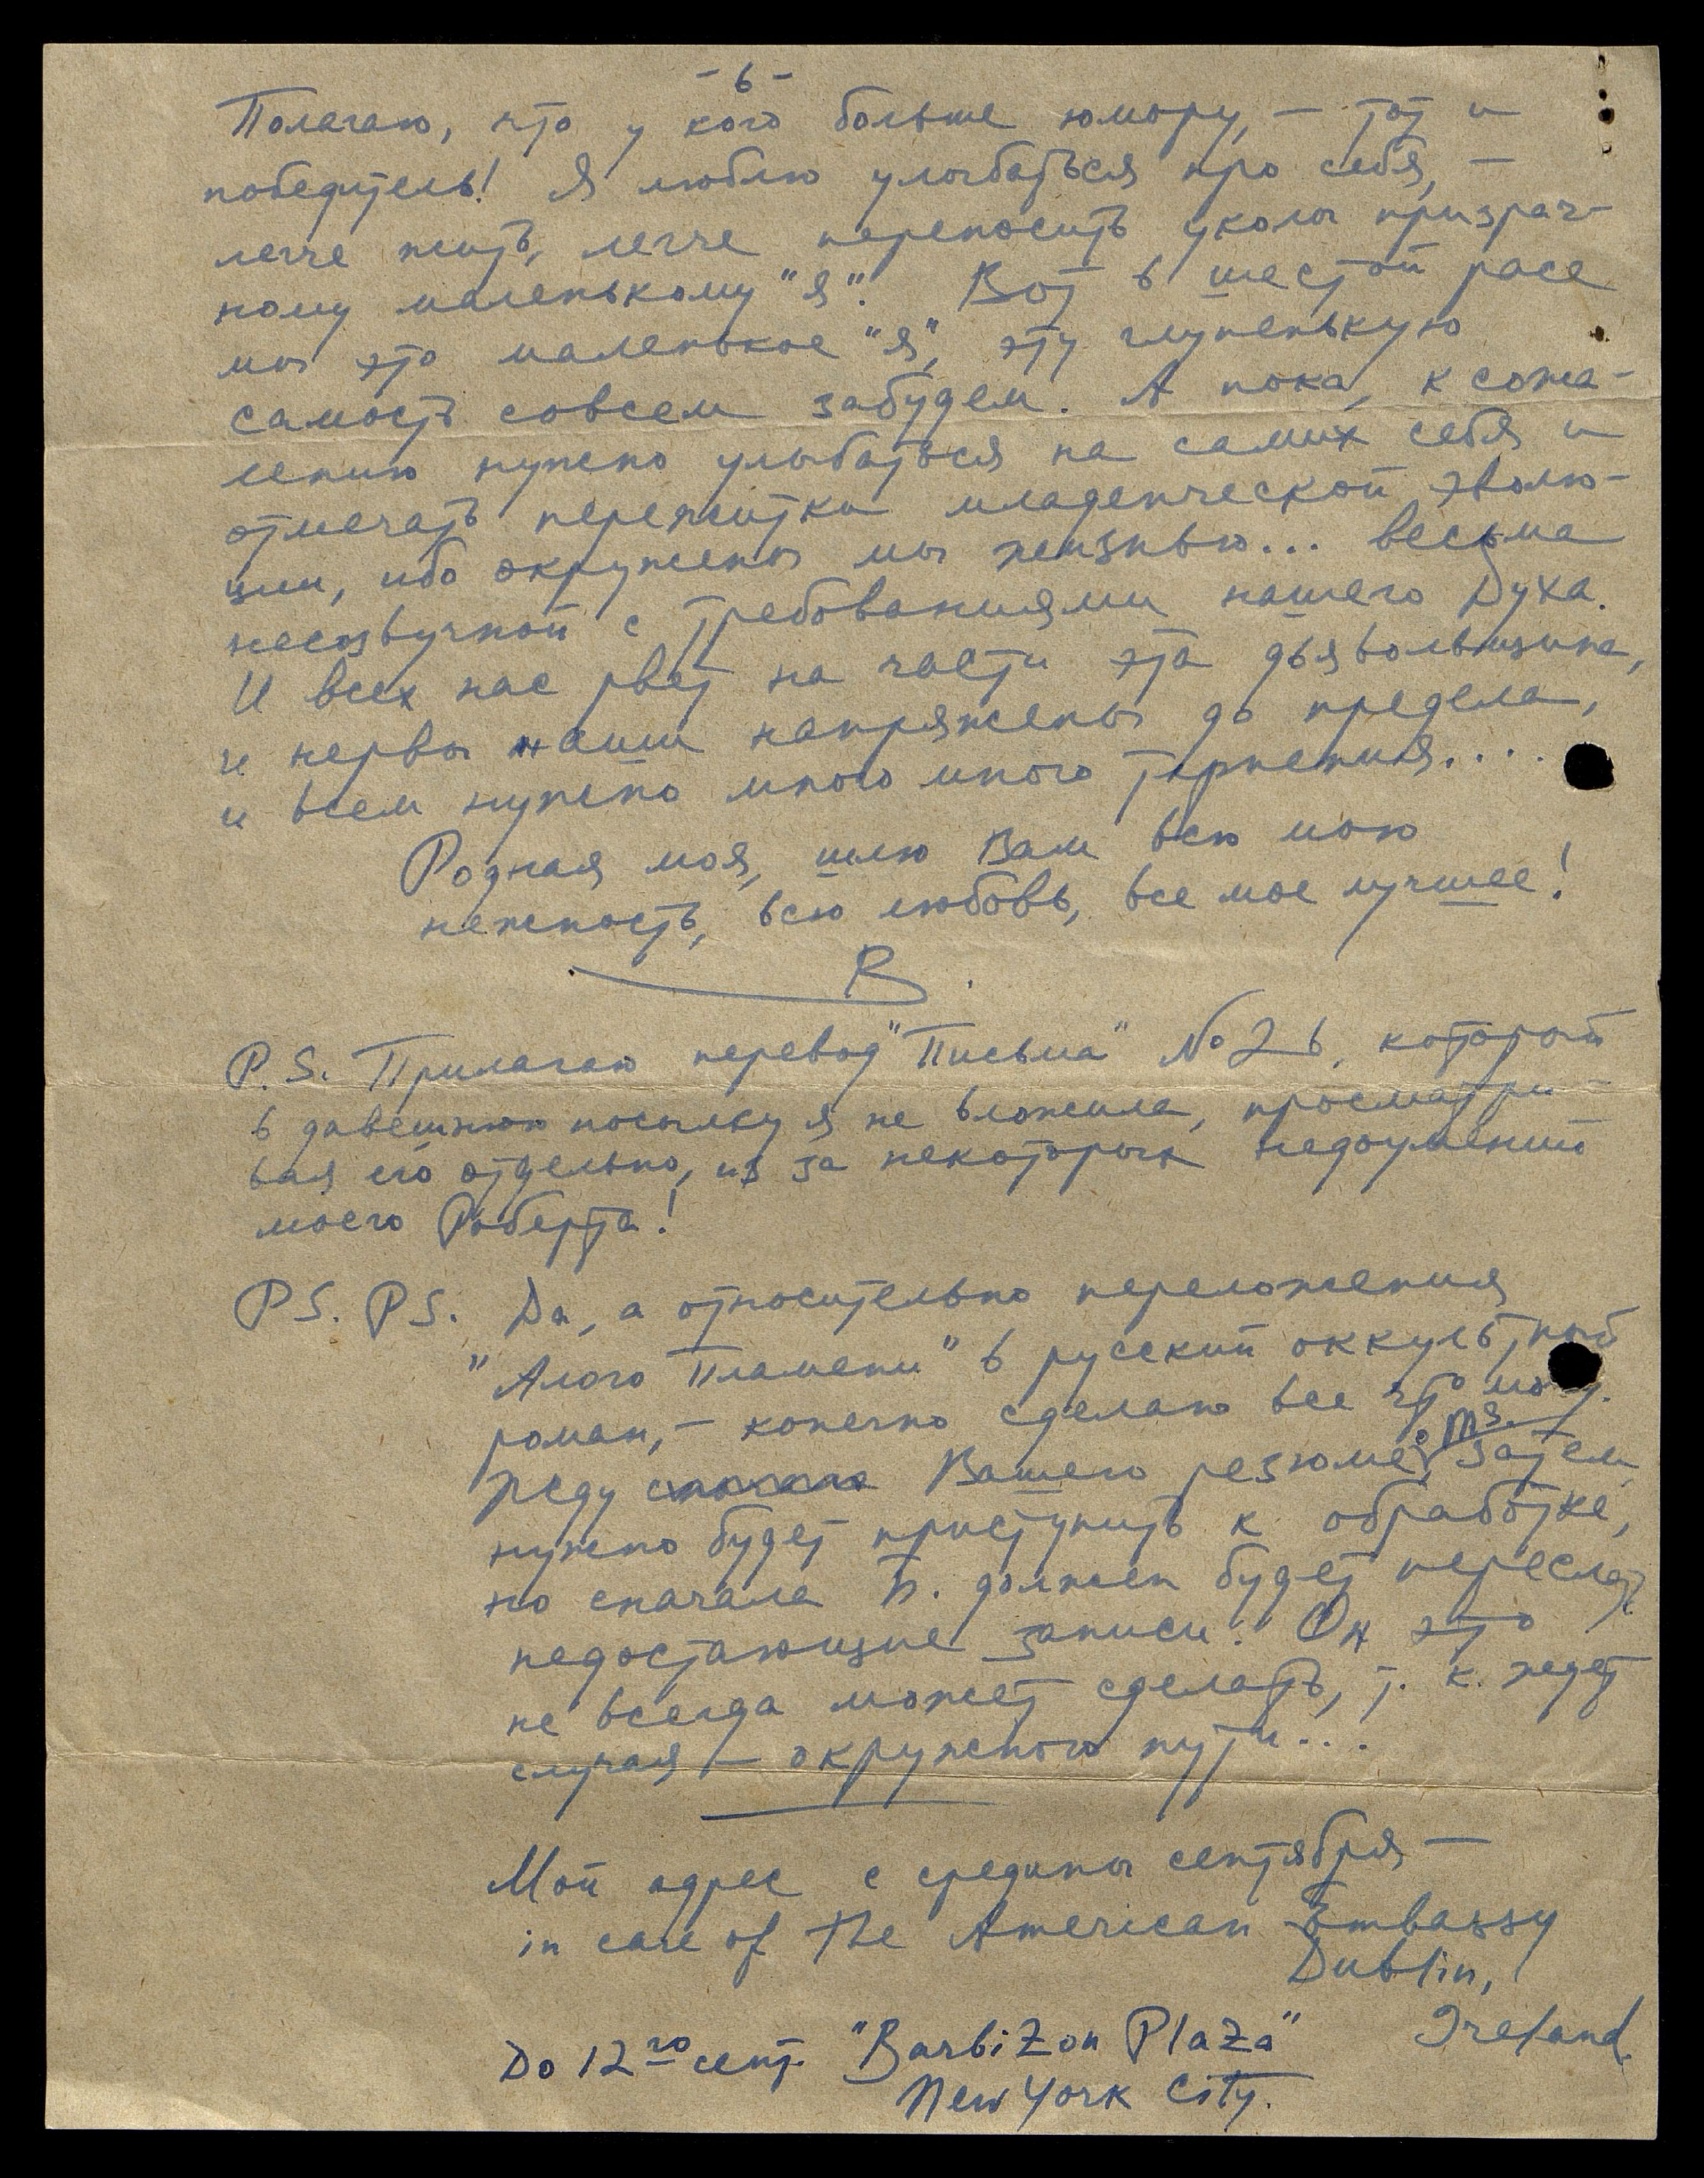 - 6 -
Полагаю, что у кого больше юмору, - тот и
победитель! Я люблю улыбаться про себя, -
легче жить, легче переносить уколы призрач-
ному маленькому "я". Вот в шестой расе
мы это маленькое "я", эту глупенькую
самость совсем забудем. А пока, к сожа-
лению нужно улыбаться на самих себя и
отмечать пережитки младенческой эволю-
ции, ибо окружены мы жизнью... весьма
несозвучной с требованиями нашего Духа.
И всех нас рвет на части эта дьявольщина,
и нервы наши напряжены до предела,
и всем нужно много много терпения....
Родная моя, шлю Вам всю мою
нежность, всю любовь, все мое лучшее!
В.
P.S. Прилагаю перевод "Письма" № 26, который
в давешнюю посылку я не вложила, просматри-
вая его отдельно, из за некоторых недоумений
моего Роберта!
PS. PS. Да, а относительно переложения
"Алого Пламени" в русский оккультный
роман, - конечно сделаю все что могу.
Жду Вашего резюме, затем
нужно будет приступить к обработке,
но сначала П. должен будет переслать
недостающие записи. Он это
не всегда может сделать, т. к. ждет
случая - окружного пути...
Мой адрес с средины сентября -
in care of The American Embassy
Dublin,
Ireland.
До 12го сент. "BarbiZon PlaZa"
New York City.